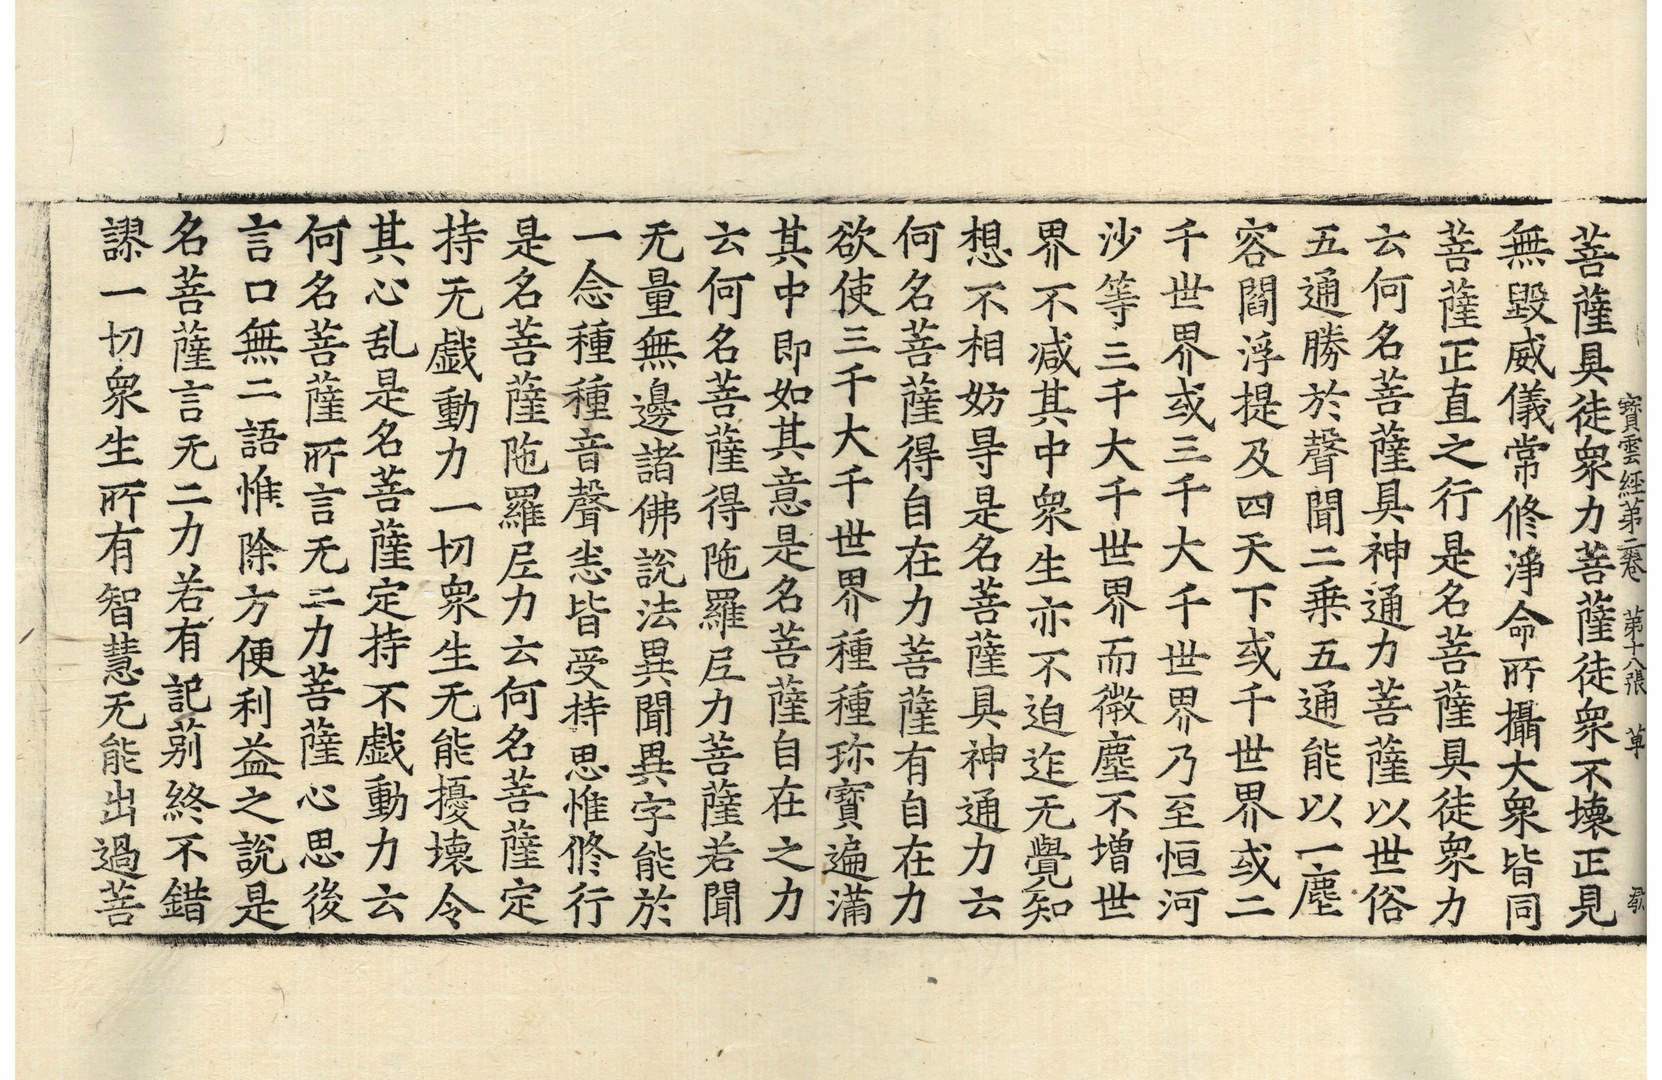 寶雲經第二卷　第十八張　草
菩薩具徒衆力菩薩徒衆不壞正見
無毀威儀常修淨命所攝大衆皆同
菩薩正直之行是名菩薩具徒衆力
云何名菩薩具神通力菩薩以世俗
五通勝於聲聞二乗五通能以一塵
容閻浮提及四天下或千世界或二
千世界或三千大千世界乃至恒河
沙等三千大千世界而微塵不增世
界不减其中衆生亦不迫迮无覺知
想不相妨㝵是名菩薩具神通力云
何名菩薩得自在力菩薩有自在力
欲使三千大千世界種種珎寶遍滿
其中即如其意是名菩薩自在之力
云何名菩薩得陁羅尼力菩薩若聞
无量無邊諸佛說法異聞異字能於
一念種種音聲悉皆受持思惟修行
是名菩薩陁羅尼力云何名菩薩定
持无戱動力一切衆生无能擾壞令
其心乱是名菩薩定持不戱動力云
何名菩薩所言无二力菩薩心思後
言口無二語惟除方便利益之說是
名菩薩言无二力若有記莂終不錯
謬一切衆生所有智慧无能出過菩